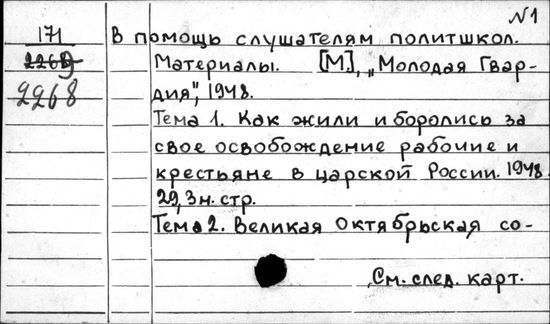 N1
171
В помощь слушателям политшкол.
Материалы. [М], „Молодая Гвар-
2268
дия", 1948.
Тема 1. Как жили и боролись за
свое освобождение рабочие и
крестьяне в царской России. 1948.
29, 3 н. стр.
Тема 2. Великая Октябрьская со-
См. след. карт.